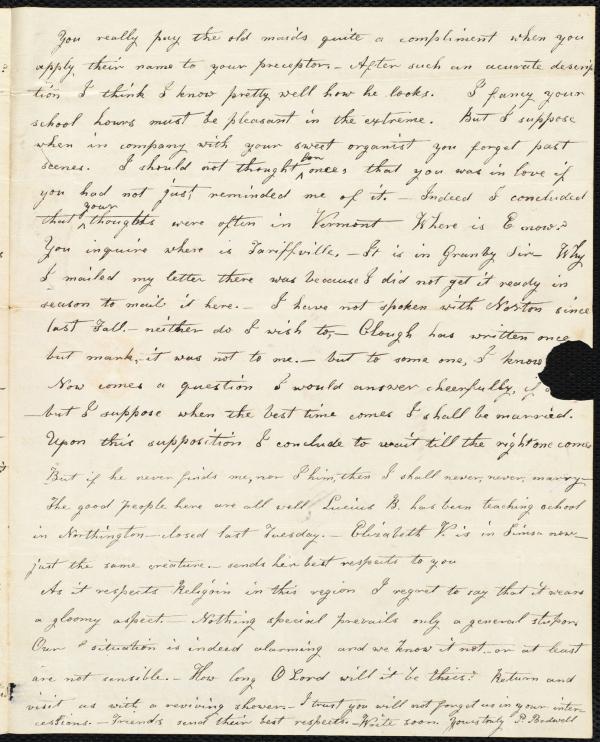 You really pay the old maids quite a compliment when you
apply their name to your preceptor.— After such an acurate descrip
tion I think I know pretty well how he looks. I fancy your
school hours must be pleasant in the extreme. But I suppose
when in company with your sweet organist you forget past
scenes. I should not thought for once, that you was in love if
you had not just reminded me of it.— Indeed I concluded
that your thoughts were often in Virmont Where is E now?
You inquire where is Tariffville,— It is in Granby Sir— Why
I mailed my letter there was because I did not get it ready in
season to mail it here.— I have not spoken with Norton since
last Fall.— neither do I wish to,— Clough has written once
but mark, it was not to me.— but to some one, I know
Now comes a question I would answer cheerfully, if
—but I suppose when the best time comes I shall be married.
Upon this supposition I conclude to wait till the right one comes
But if he never finds me, nor I him, then I shall never, never, marry—
The good people here are all well Lucius B. has been teaching school
in Northington—closed last Tuesday.— Elizabeth V. is in Simsb now—
just the same creature.— sends her best respects to you
As it respects Religion in this region I regret to say that it wears
a gloomy aspect.— Nothing special prevails only a general stupor.
Our situation is indeed alarming and we know it not—or at least
are not sensible.— How long O Lord will it be thus? Return and
visit us with a reviving shower.— I trust you will not forget us in your inter-
cessions.— Friends send their best respects.—Write soon. Yours truly P. Bidwell